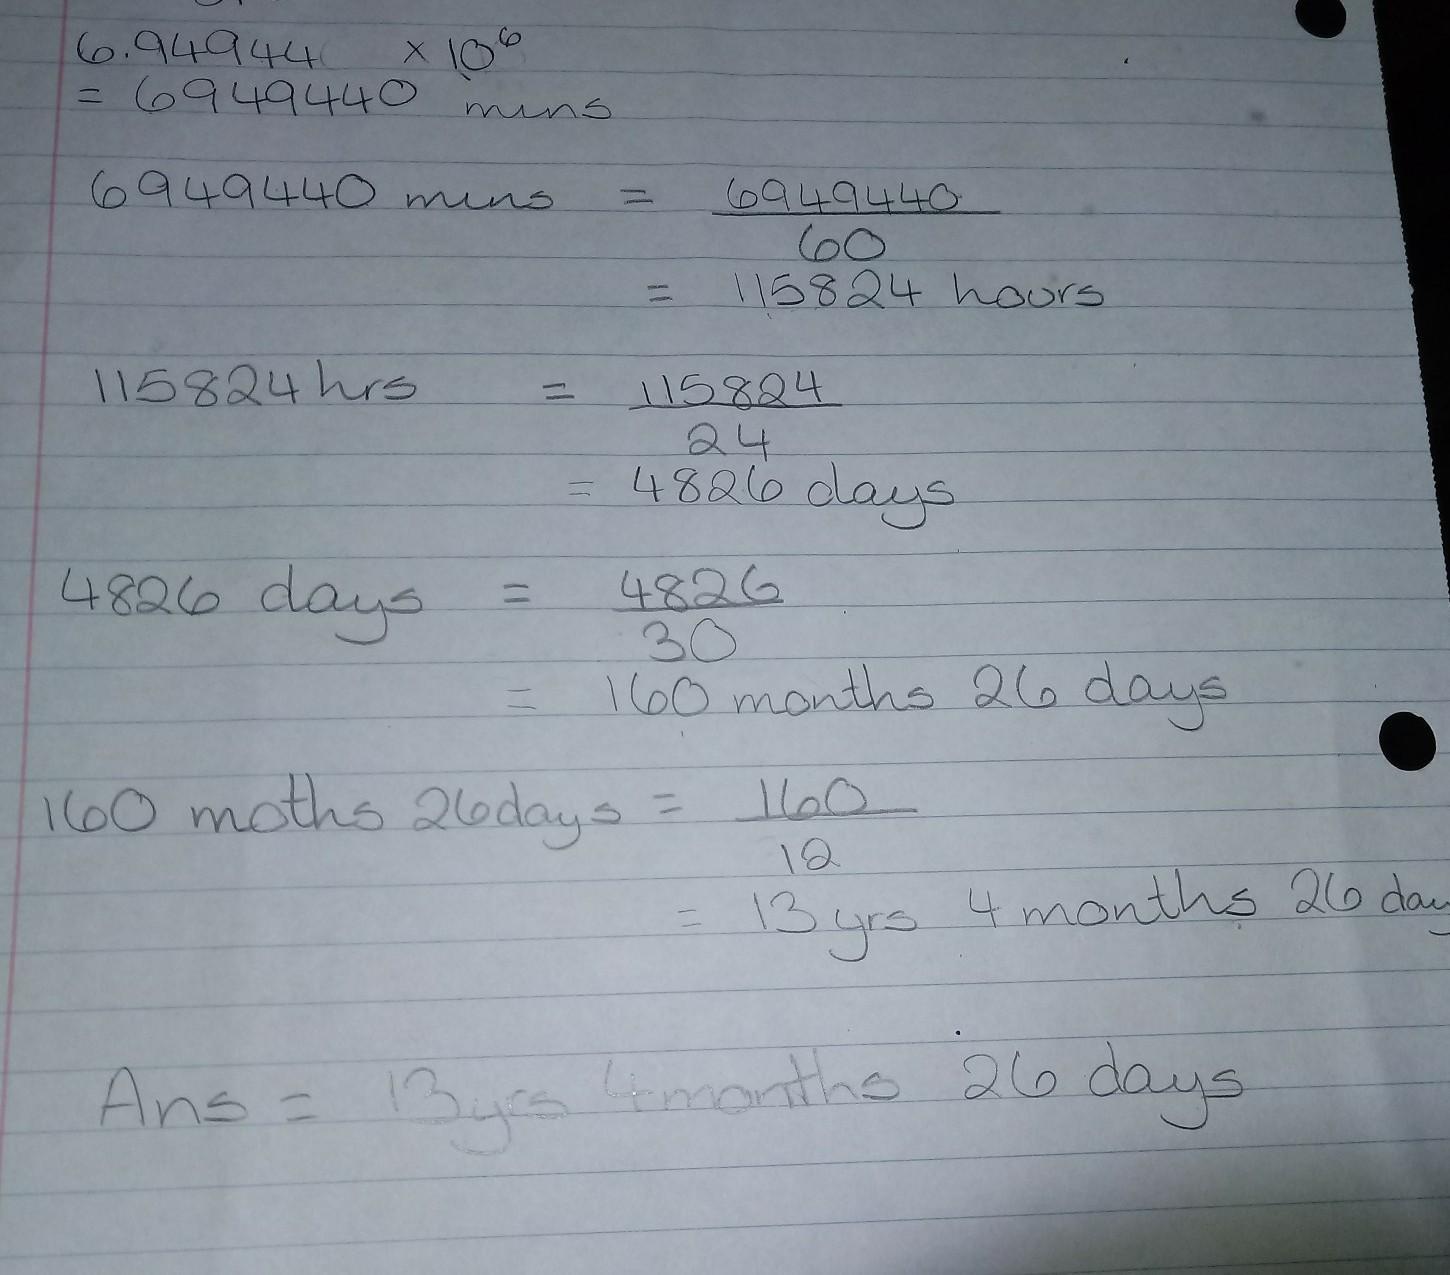 6.94944 × 10⁶
= 6949440 mins
6949440 mins = 6949440
60
= 115824 hours
115824 hrs = 115824
24
= 4826 days
4826 days = 4826
30
= 160 months 26 days
160 moths 26 days = 160
12
= 13 yrs 4 months 26 day
Ans = 13 yrs 4 months 26 days